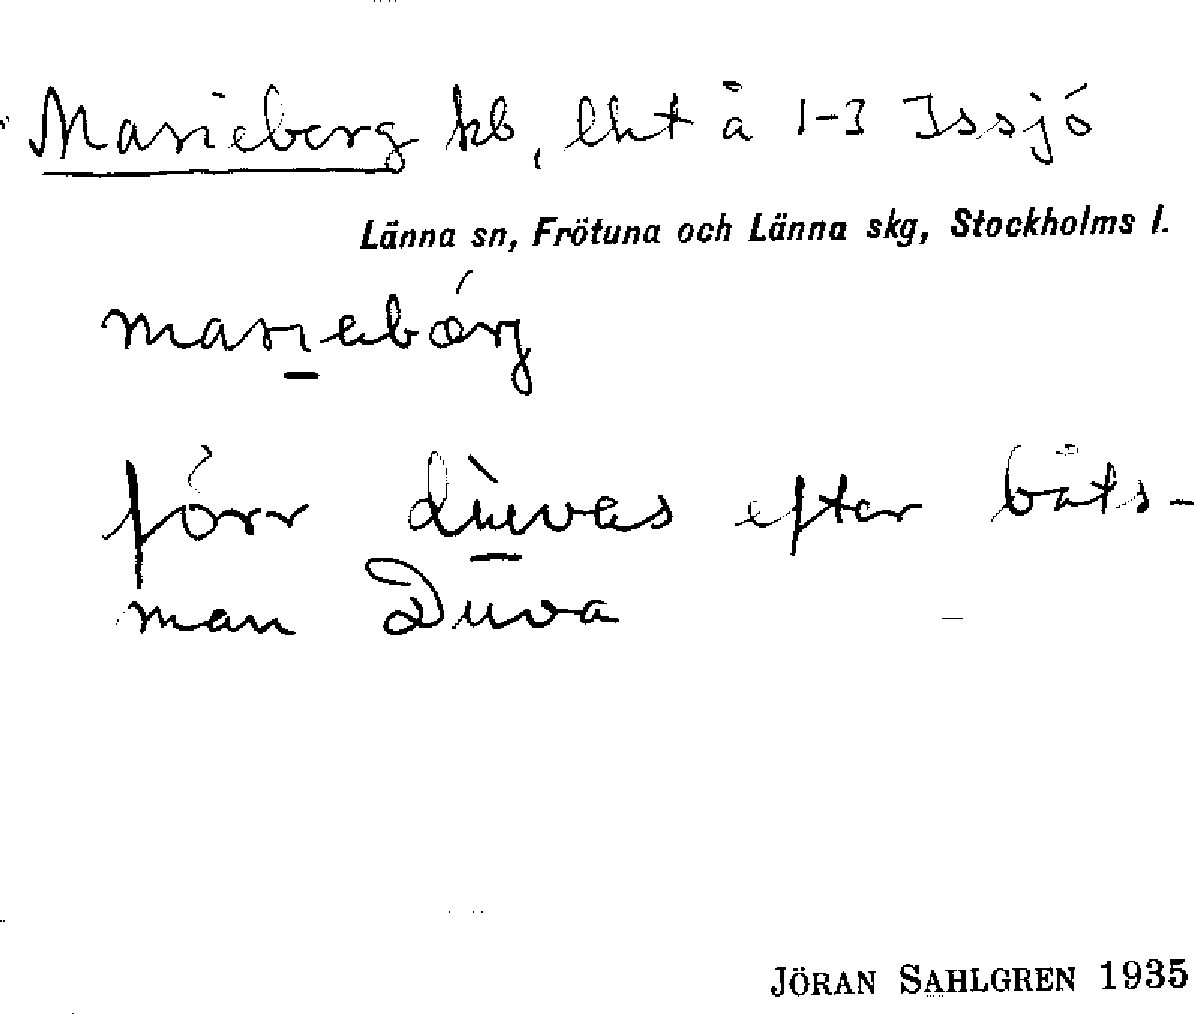 Marieberg kb, lht å 1-3 Issjö
Länna sn, Frötuna och Länna skg, Stockholms l.
mariebärj
förr duvas efter båts-
man Duva
JÖRAN SAHLGREN 1935